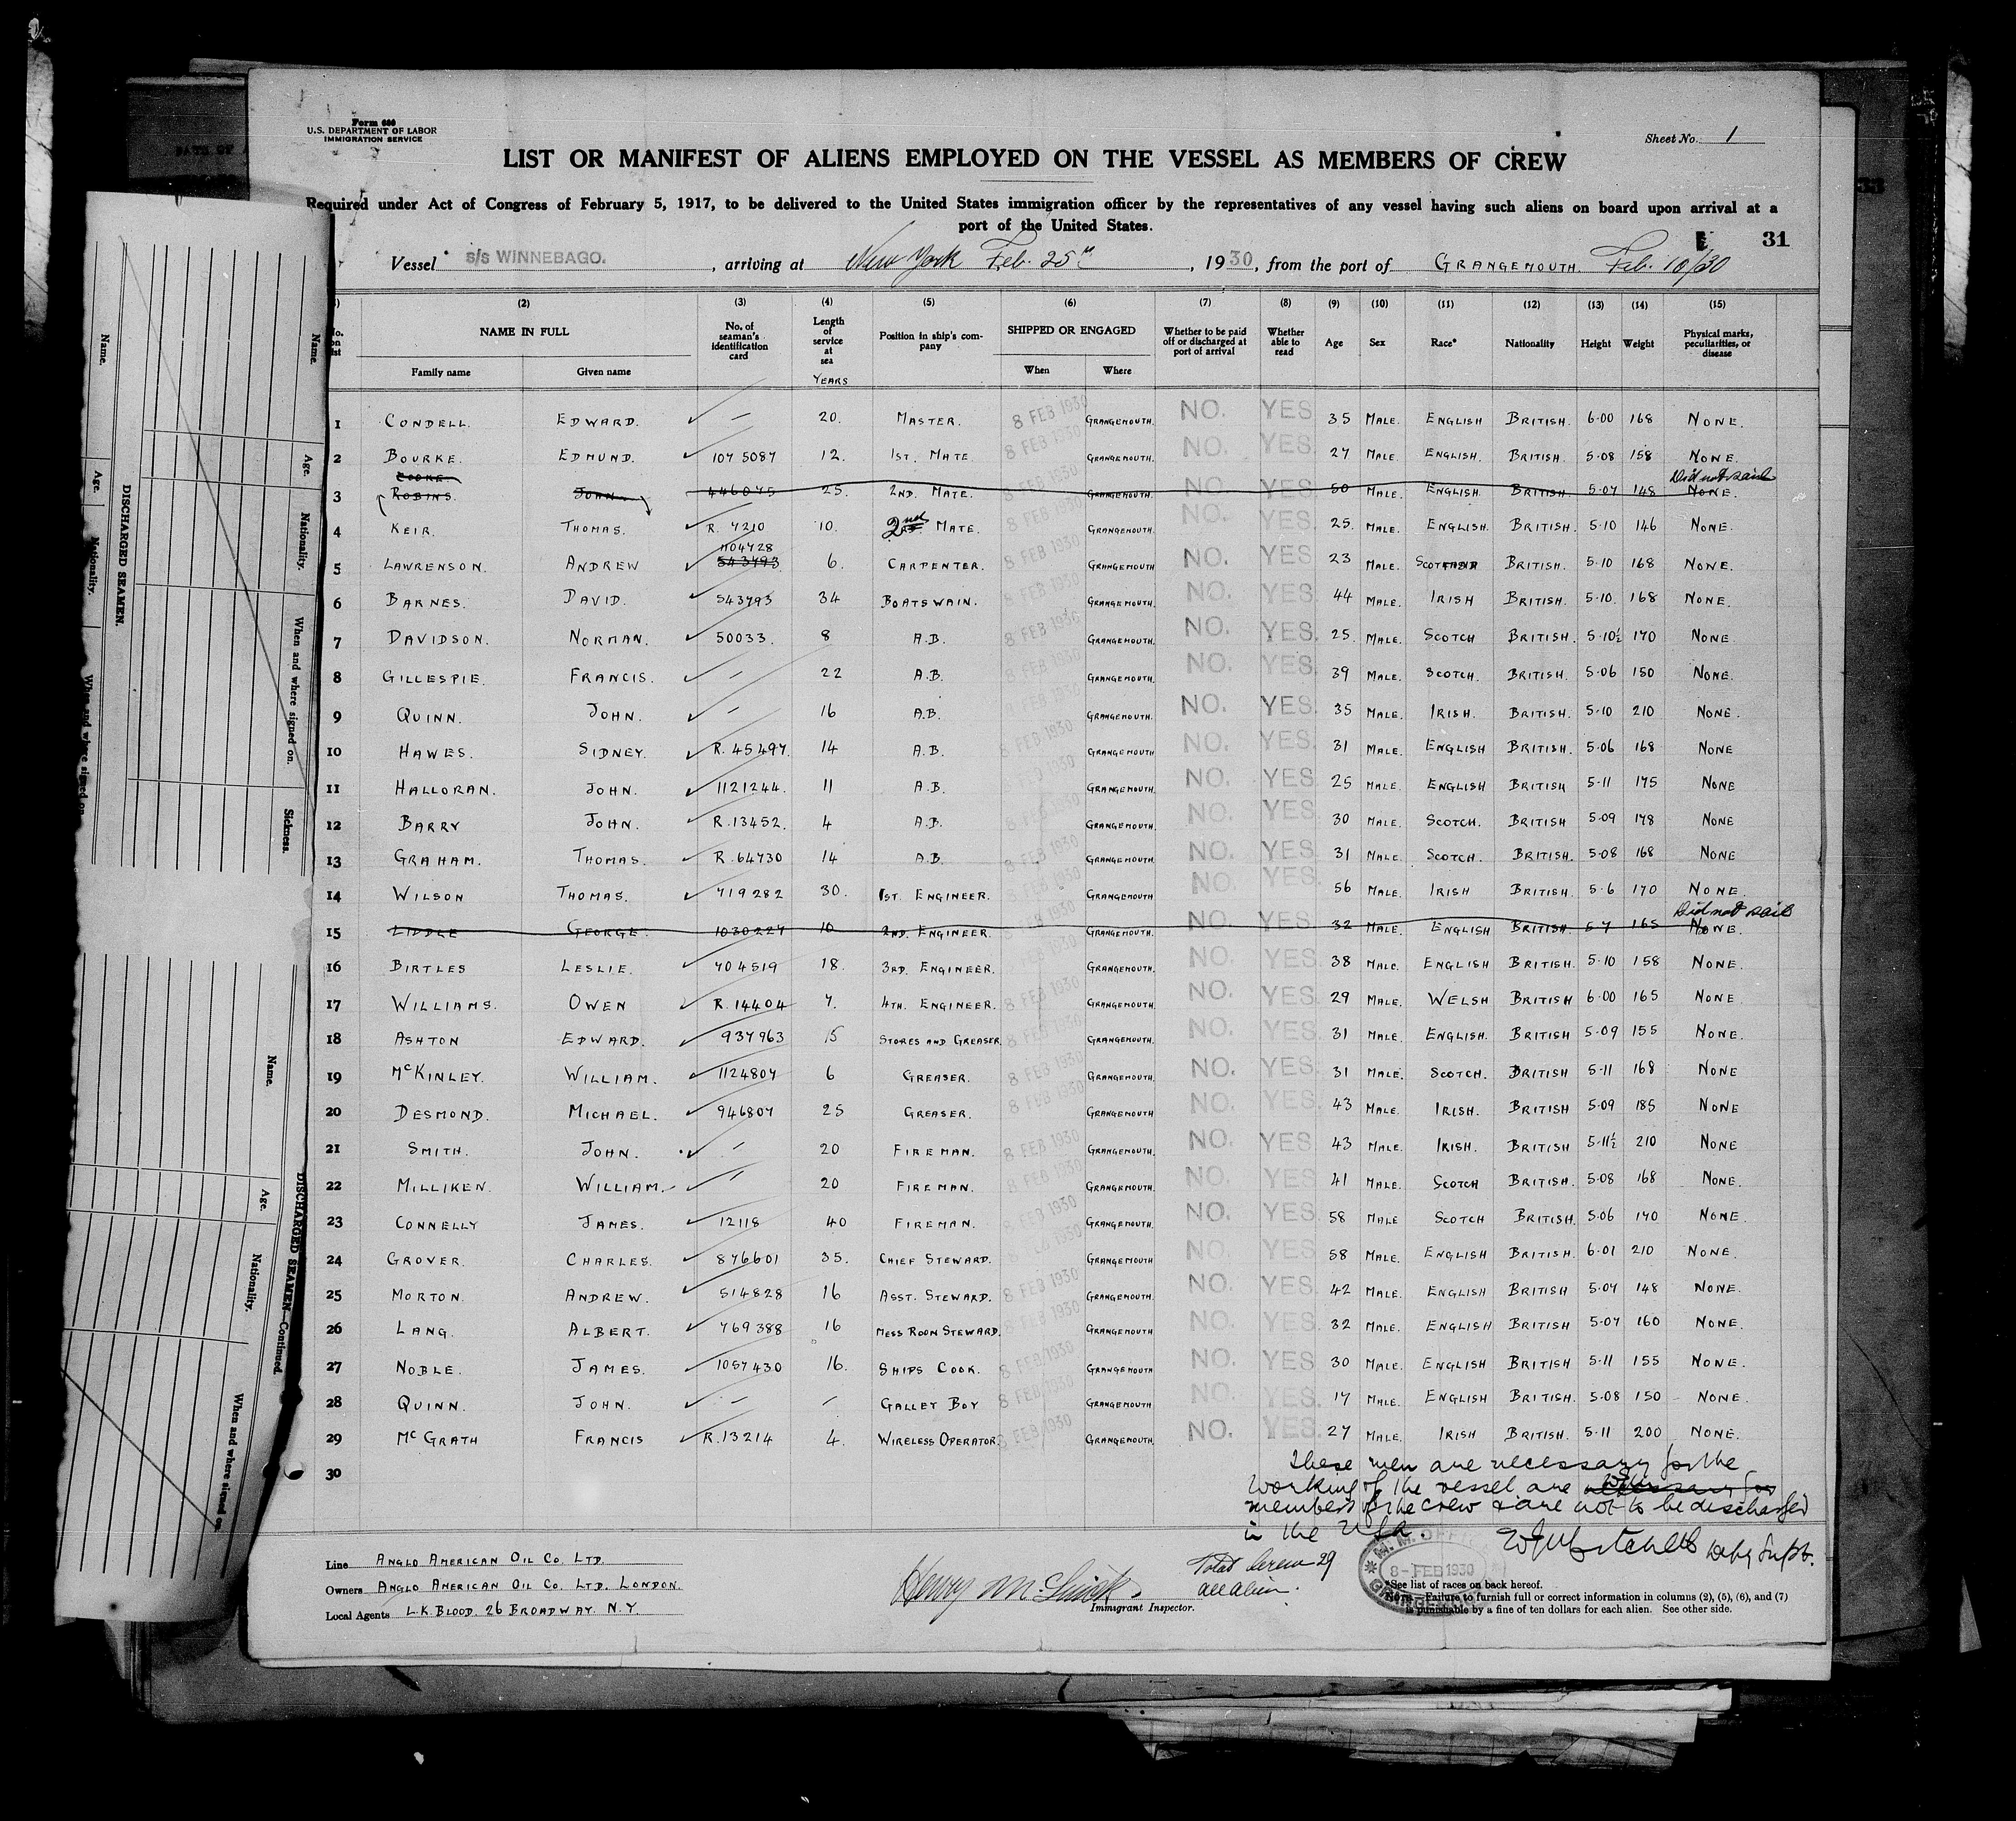 Form 680
U.S. DEPARTMENT OF LABOR
IMMIGRATION SERVICE
Sheet No. 1
LIST OR MANIFEST OF ALIENS EMPLOYED ON THE VESSEL AS MEMBERS OF CREW
Required under Act of Congress of February 5, 1917, to be delivered to the United States immigration officer by the representatives of any vessel having such aliens on board upon arrival at a
port of the United States.
31
Vessel s/s WINNEBAGO., arriving at New York Feb. 25th, 1930, from the port of GRANGEMOUTH. Feb. 10/30
(2) (3) (4) (5) (6) (7) (8) (9) (10) (11) (12) (13) (14) (15)
NAME IN FULL No. of seaman's identification card Length of service at sea Position in ship's company SHIPPED OR ENGAGED Whether to be paid off or discharged at port of arrival Whether able to read Age Sex Race* Nationality Height Weight Physical marks, peculiarities, or disease
Family name Given name YEARS When Where
1 CONDELL. EDWARD. — 20. MASTER. 8 FEB 1930 GRANGEMOUTH. NO. YES 35 MALE. ENGLISH BRITISH. 6·00 168 NONE.
2 BOURKE. EDMUND. 107 5087 12. 1ST. MATE. 8 FEB 1930 GRANGEMOUTH. NO. YES 27 MALE. ENGLISH. BRITISH. 5·08 158 NONE.
COOKE. Did not sail
3 ROBINS. JOHN. 446075 25. 2ND. MATE. 8 FEB 1930 GRANGEMOUTH. NO. YES 50 MALE. ENGLISH BRITISH. 5·07 148 NONE.
4 KEIR. THOMAS. R. 7210 10. 2nd MATE. 8 FEB 1930 GRANGEMOUTH. NO. YES 25. MALE. ENGLISH. BRITISH. 5·10 146 NONE.
1104728
5 LAWRENSON. ANDREW 543793 6. CARPENTER. 8 FEB 1930 GRANGEMOUTH NO. YES 23 MALE. BRITISH. 5·10 168 NONE.
6 BARNES. DAVID. 543793 34 BOATSWAIN. 8 FEB 1930 GRANGEMOUTH. NO. YES 44 MALE. IRISH BRITISH. 5·10. 168 NONE.
7 DAVIDSON. NORMAN. 50033. 8 A.B. 8 FEB 1930 GRANGEMOUTH. NO. YES. 25. MALE. SCOTCH BRITISH. 5·10½ 170 NONE.
8 GILLESPIE. FRANCIS. — 22 A.B. 8 FEB 1930 GRANGEMOUTH. NO. YES. 39 MALE. SCOTCH. BRITISH. 5·06 150 NONE.
9 QUINN. JOHN. — 16 A.B. 8 FEB 1930 GRANGEMOUTH. NO. YES. 35 MALE. IRISH. BRITISH. 5·10 210 NONE.
10 HAWES. SIDNEY. R. 45497. 14 A.B. 8 FEB 1930 GRANGEMOUTH NO. YES. 31 MALE. ENGLISH BRITISH. 5·06 168 NONE
11 HALLORAN. JOHN. 1121244. 11 A.B. 8 FEB 1930 GRANGEMOUTH. NO. YES 25 MALE. ENGLISH BRITISH 5·11 175 NONE
12 BARRY JOHN. R.13452. 4 A.B. 8 FEB 1930 GRANGEMOUTH. NO. YES 30 MALE. SCOTCH. BRITISH 5·09 178 NONE
13 GRAHAM. THOMAS. R. 64730 14 A.B. 8 FEB 1930 GRANGEMOUTH. NO. YES 31 MALE. SCOTCH. BRITISH. 5·08 168 NONE
14 WILSON THOMAS. 719282 30. 1ST. ENGINEER. 8 FEB 1930 GRANGEMOUTH NO. YES 56 MALE. IRISH BRITISH. 5·6 170 NONE.
Did not sail
15 LIDDLE GEORGE. 1030227 10 2ND. ENGINEER. 8 FEB 1930 GRANGEMOUTH. NO. YES 32 MALE. ENGLISH BRITISH. 5·7 165 NONE.
16 BIRTLES LESLIE. 704519 18. 3RD. ENGINEER. 8 FEB 1930 GRANGEMOUTH. NO. YES 38 MALE. ENGLISH BRITISH. 5·10 158 NONE.
17 WILLIAMS. OWEN R. 14404 7. 4TH. ENGINEER. 8 FEB 1930 GRANGEMOUTH. NO. YES. 29 MALE. WELSH BRITISH 6·00 165 NONE
18 ASHTON EDWARD. 937963 15 STORES AND GREASER. 8 FEB 1930 GRANGEMOUTH. NO. YES. 31 MALE. ENGLISH. BRITISH 5·09 155 NONE.
19 McKINLEY. WILLIAM. 1124807 6 GREASER. 8 FEB 1930 GRANGEMOUTH. NO. YES 31 MALE. SCOTCH. BRITISH 5·11 168 NONE
20 DESMOND. MICHAEL. 946807 25 GREASER. 8 FEB 1930 GRANGEMOUTH NO. YES. 43 MALE. IRISH. BRITISH 5·09 185 NONE
21 SMITH. JOHN. — 20 FIREMAN. 8 FEB 1930 GRANGEMOUTH. NO. YES 43 MALE. IRISH. BRITISH 5·11½ 210 NONE
22 MILLIKEN. WILLIAM. — 20 FIREMAN. 8 FEB 1930 GRANGEMOUTH. NO. YES 41 MALE. SCOTCH BRITISH. 5·08 168 NONE.
23 CONNELLY JAMES. 12118 40 FIREMAN. 8 FEB 1930 GRANGEMOUTH. NO. YES. 58 MALE SCOTCH BRITISH. 5·06 140 NONE.
24 GROVER. CHARLES. 876601 35. CHIEF STEWARD. 8 FEB 1930 GRANGEMOUTH NO. YES 58 MALE. ENGLISH BRITISH. 6·01 210 NONE.
25 MORTON. ANDREW. 514828 16 ASST. STEWARD. 8 FEB 1930 GRANGEMOUTH. NO. YES. 42 MALE. ENGLISH BRITISH 5·07 148 NONE.
26 LANG. ALBERT. 769388 16 MESS ROOM STEWARD. 8 FEB 1930 GRANGEMOUTH NO. YES. 32 MALE. ENGLISH BRITISH 5·07 160 NONE.
27 NOBLE. JAMES. 1057430 16. SHIPS COOK. 8 FEB 1930 GRANGEMOUTH NO. YES 30 MALE. ENGLISH BRITISH 5·11 155 NONE.
28 QUINN. JOHN. — — GALLEY BOY 8 FEB 1930 GRANGEMOUTH NO. YES. 17 MALE. ENGLISH BRITISH. 5·08 150 NONE.
29 McGRATH FRANCIS R.13214 4. WIRELESS OPERATOR 8 FEB 1930 GRANGEMOUTH. NO. YES. 27 MALE. IRISH BRITISH. 5·11 200 NONE.
30
These men are necessary for the
working of the vessel are
members of the crew & are not to be discharged
in the USA.
Deputy Supt.
8-FEB 1930
Line ANGLO AMERICAN OIL CO. LTD.
Owners ANGLO AMERICAN OIL CO. LTD. LONDON.
Local Agents L.K. BLOOD. 26 BROADWAY. N.Y.
Henry
Immigrant Inspector.
Total Crew 29
all alien.
*See list of races on back hereof.
NOTE.—Failure to furnish full or correct information in columns (2), (5), (6), and (7)
is punishable by a fine of ten dollars for each alien. See other side.
DISCHARGED SEAMEN.
Name. Age. Nationality. When and where signed on. Sickness.
Name. Age. Nationality. When and where signed on.
DISCHARGED SEAMEN—Continued.
Name. Age. Nationality. When and where signed on.